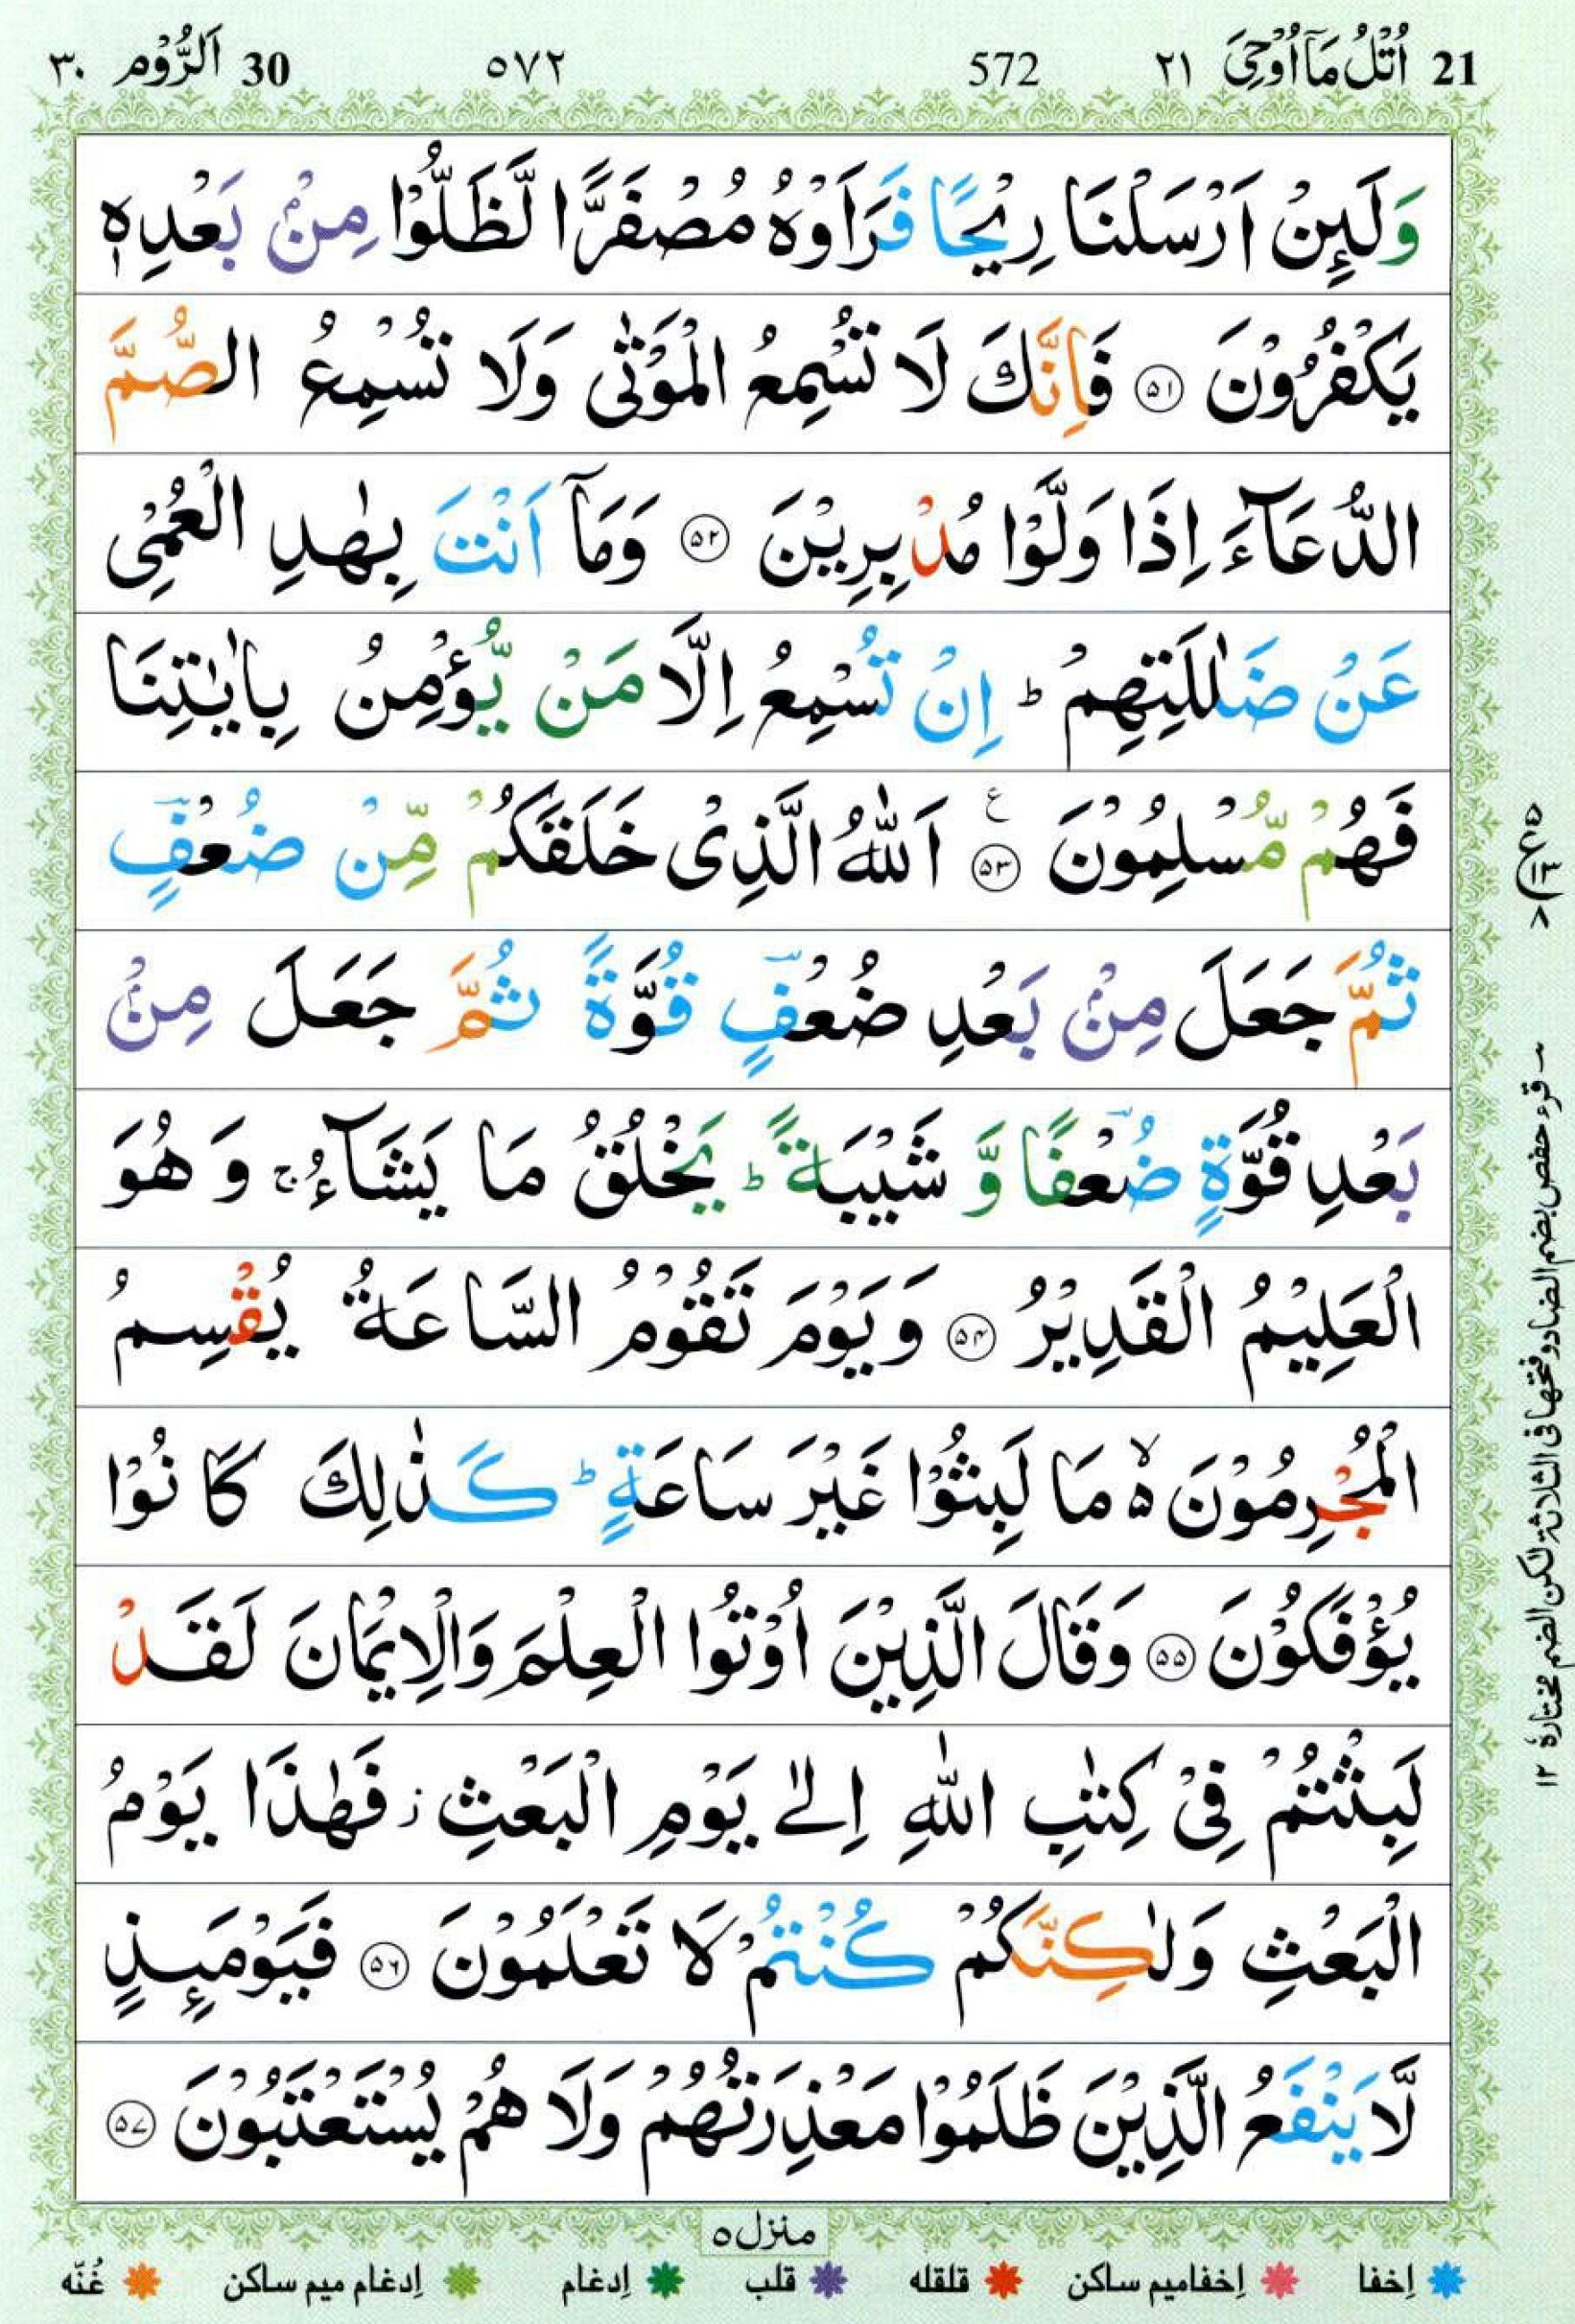 21 اُتْلُ مَآ اُوْحِیَ ٢١ 572 ٥٧٢ 30 اَلرُّوْم ٣٠
وَلَىِٕنْ اَرْسَلْنَا رِیْحًا فَرَاَوْهُ مُصْفَرًّا لَّظَلُّوْا مِنْۢ بَعْدِهٖ
یَكْفُرُوْنَ ﴿٥١﴾ فَاِنَّكَ لَا تُسْمِعُ الْمَوْتٰى وَلَا تُسْمِعُ الصُّمَّ
الدُّعَآءَ اِذَا وَلَّوْا مُدْبِرِیْنَ ﴿٥٢﴾ وَمَاۤ اَنْتَ بِهٰدِ الْعُمْیِ
عَنْ ضَلٰلَتِهِمْ ؕ اِنْ تُسْمِعُ اِلَّا مَنْ یُّؤْمِنُ بِاٰیٰتِنَا
فَهُمْ مُّسْلِمُوْنَ ﴿٥٣﴾ ع اَللّٰهُ الَّذِیْ خَلَقَكُمْ مِّنْ ضُعْفٍ
ثُمَّ جَعَلَ مِنْۢ بَعْدِ ضُعْفٍ قُوَّةً ثُمَّ جَعَلَ مِنْۢ
بَعْدِ قُوَّةٍ ضُعْفًا وَّ شَیْبَةً ؕ یَخْلُقُ مَا یَشَآءُ ۚ وَ هُوَ
الْعَلِیْمُ الْقَدِیْرُ ﴿٥٤﴾ وَیَوْمَ تَقُوْمُ السَّاعَةُ یُقْسِمُ
الْمُجْرِمُوْنَ ۙ۬ مَا لَبِثُوْا غَیْرَ سَاعَةٍ ؕ كَذٰلِكَ كَانُوْا
یُؤْفَكُوْنَ ﴿٥٥﴾ وَقَالَ الَّذِیْنَ اُوْتُوا الْعِلْمَ وَالْاِیْمَانَ لَقَدْ
لَبِثْتُمْ فِیْ كِتٰبِ اللّٰهِ اِلٰى یَوْمِ الْبَعْثِ ؗ فَهٰذَا یَوْمُ
الْبَعْثِ وَلٰكِنَّكُمْ كُنْتُمْ لَا تَعْلَمُوْنَ ﴿٥٦﴾ فَیَوْمَىِٕذٍ
لَّا یَنْفَعُ الَّذِیْنَ ظَلَمُوْا مَعْذِرَتُهُمْ وَلَا هُمْ یُسْتَعْتَبُوْنَ ﴿٥٧﴾
قرء حفص بضم الضاد و فتحها فی الثلاثة لكن الضم مختارة ١٢
منزل ٥
اِخفا اِخفامیم ساكن قلقله قلب اِدغام اِدغام میم ساكن غُنّه